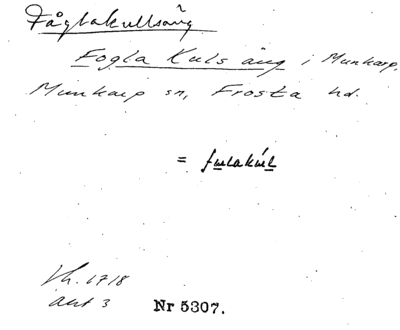 Fåglakullsäng
Fogla Kuls äng i Munkarp.
Munkarp sn, Frosta hd.
=
Vh. 1718
akt 3
Nr 5307.